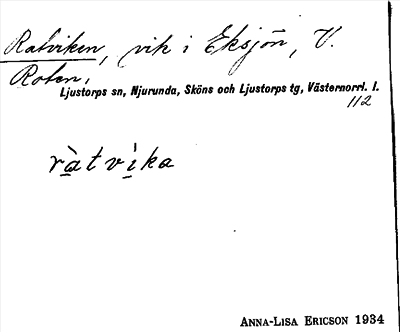 Ratviken, vik i Eksjön, V.
Roten,
Ljustorps sn, Njurunda, Sköns och Ljustorps tg, Västernorrl. l.
112
ràtvìka
ANNA-LISA ERICSON 1934